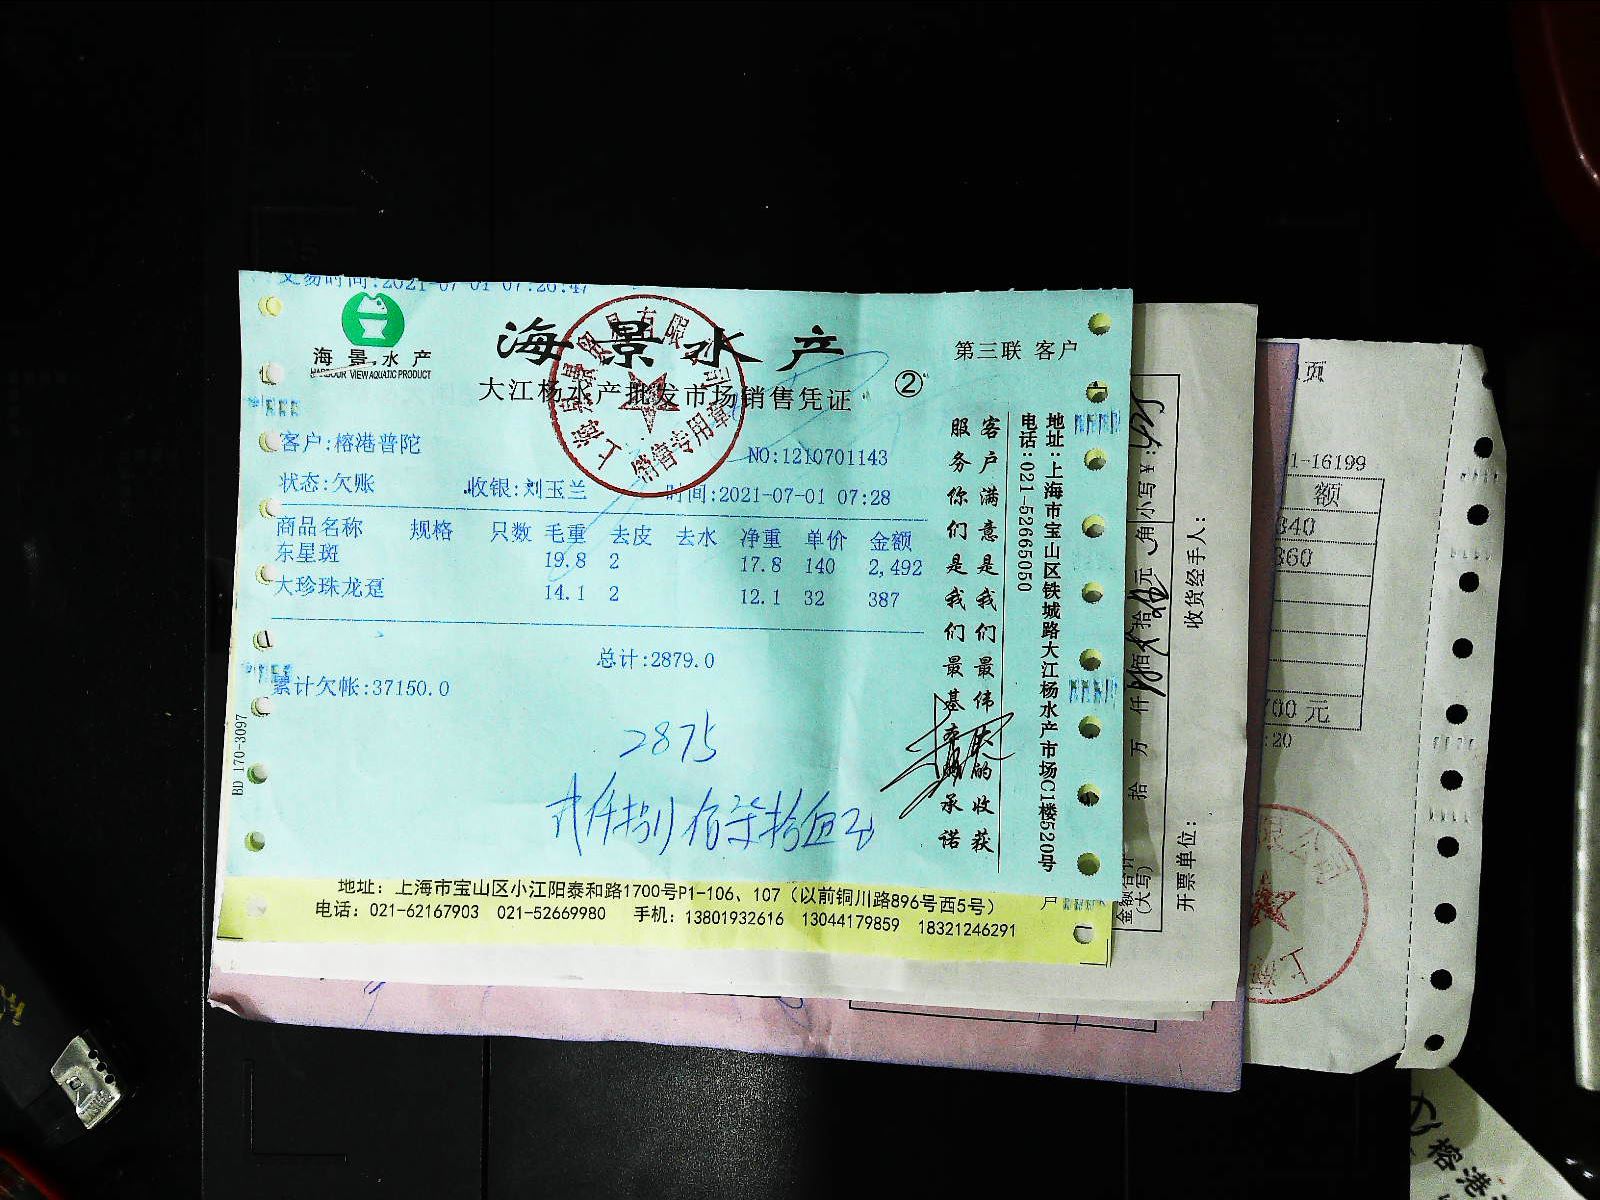 交易时间:2021-07-01 07:26:47
海景水产
HARBOUR VIEW AQUATIC PRODUCT
海景水产
大江杨水产批发市场销售凭证
②
第三联 客户
销售专用章
客户:榕港普陀
NO:1210701143
状态:欠账 收银:刘玉兰 时间:2021-07-01 07:28
商品名称 规格 只数 毛重 去皮 去水 净重 单价 金额
东星斑 19.8 2 17.8 140 2,492
大珍珠龙趸 14.1 2 12.1 32 387
总计:2879.0
累计欠帐:37150.0
BD 170-3097
2875
贰仟捌佰柒拾伍元
客户满意是我们最伟大的收获
服务你们是我们最基本的承诺
地址:上海市宝山区铁城路大江杨水产市场C1楼520号
电话:021-52665050
地址：上海市宝山区小江阳泰和路1700号P1-106、107（以前铜川路896号西5号）
电话：021-62167903 021-52669980 手机：13801932616 13044179859 18321246291
户
小写¥:
万 仟 佰 拾 元 角
拾
金额合计
(大写)
收货经手人:
开票单位:
页
1-16199
额
340
360
700 元
:20
限公司
上海
榕港